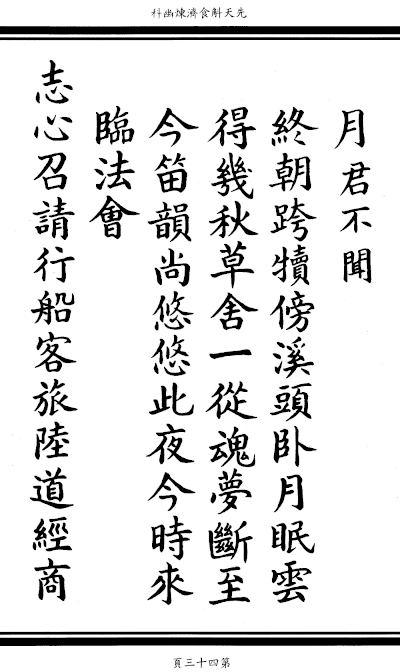 先天斛食濟煉幽科
月君不聞
終朝跨犢傍溪頭卧月眠雲
得幾秋草舍一從魂夢斷至
今笛韻尚悠悠此夜今時來
臨法會
志心召請行船客旅陸道經商
第四十三頁